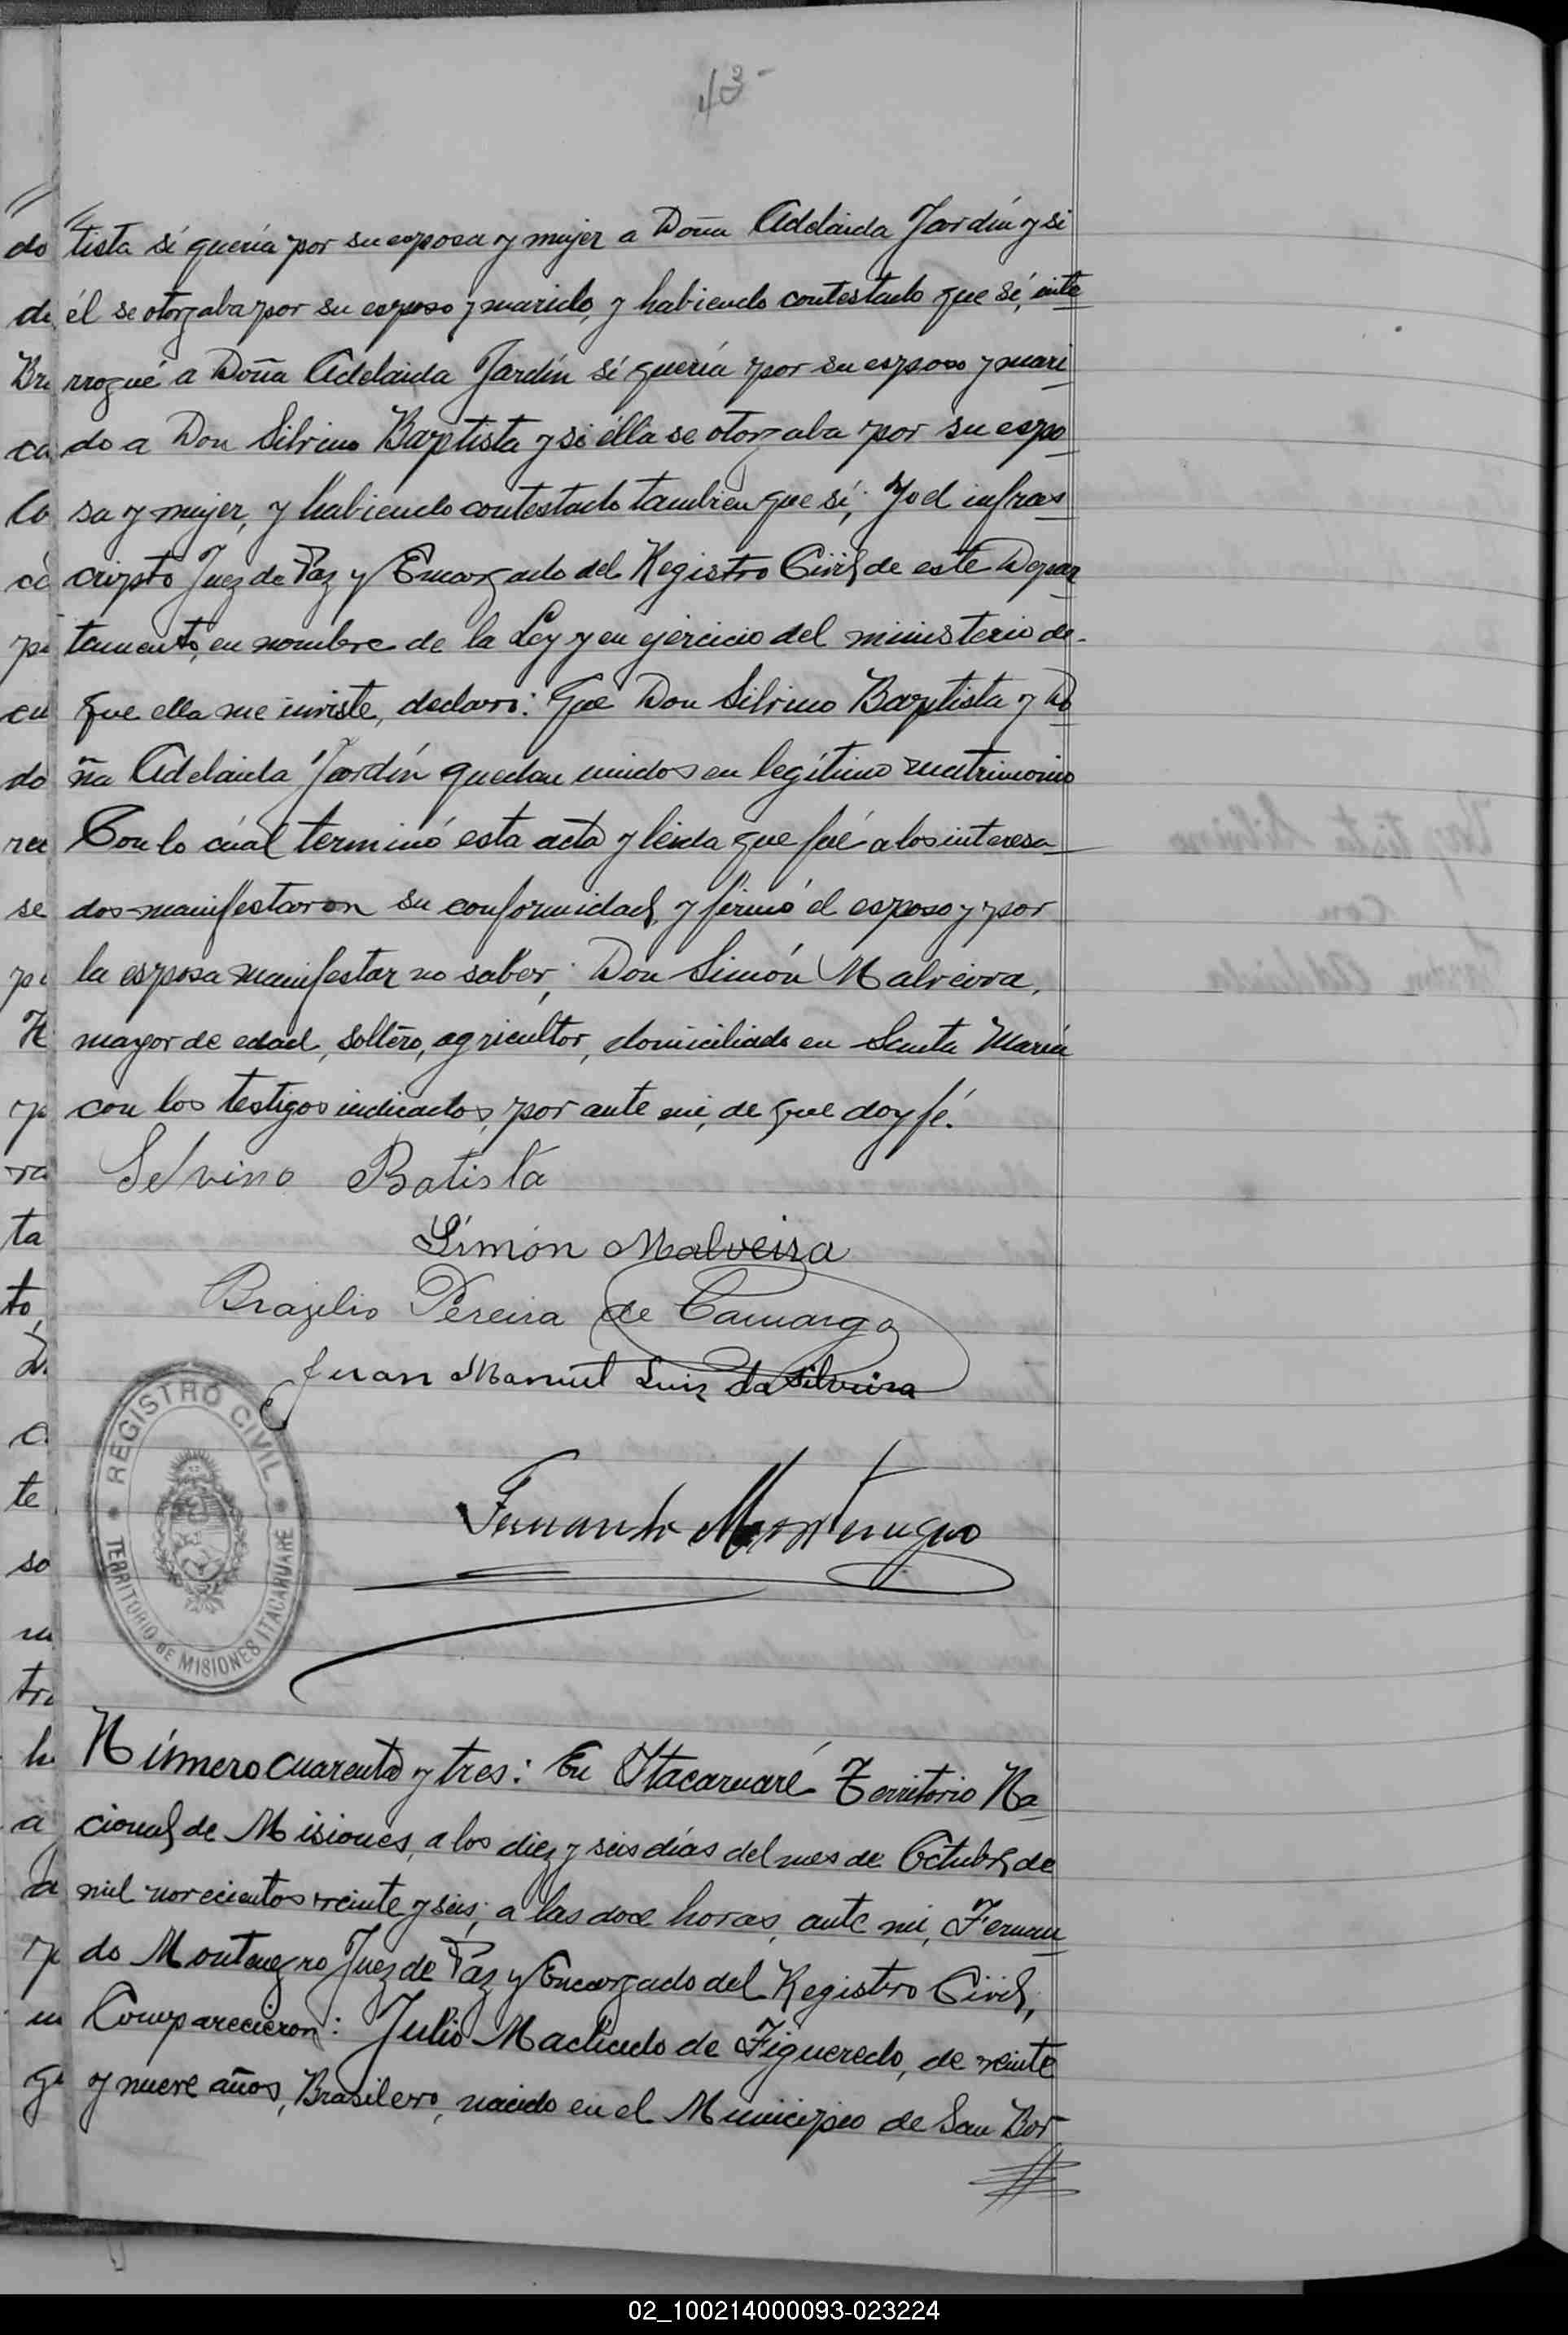 43-
"tista si quería por su esposa y mujer a Doña Adelaida Jardín y si
él se otorgaba por su esposo y marido, y habiendo contestado que sí, inte
rrogué a Doña Adelaida Jardín sí quería por su esposo y mari
do a Don Silvino Baptista y si élla se otorgaba por su espo
sa y mujer, y habiendo contestado tambien que sí; Yo el infras
cripto Juez de Paz y Encargado del Registro Civil de este Depar
tamento, en nombre de la Ley y en ejercicio del ministerio de-
que ella me inviste, declaro: Que Don Silvino Baptista y Do
ña Adelaida Jardín quedan unidos en legítimo matrimonio
Con lo cúal terminó esta acta y leida que fué a los interesa
dos manifestaron su conformidad, y firmó el esposo y por
la esposa manifestar no saber; Don Simón Malveira,
mayor de edad, soltero, agricultor, domiciliado en Santa María
con los testigos indicados, por ante mi, de que doy fé.
Selvino Batista
Simón Malveira
Brazilio Pereira de Camargo
Juan Manuel Luiz da Silveira
REGISTRO CIVIL
TERRITORIO DE MISIONES ITACARUARE
Fernando Montenegro
Número cuarenta y tres: En Itacaruaré Territorio Na
cional de Misiones, a los diez y seis días del mes de Octubre de
mil novecientos veinte y seis; a las doce horas, ante mi, Fernan
do Montenegro Juez de Paz y Encargado del Registro Civil,
Comparecieron: Julio Machado de Figueredo, de veinte
y nueve años, Brasilero, nacido en el Municipio de San Bor
02_100214000093-023224